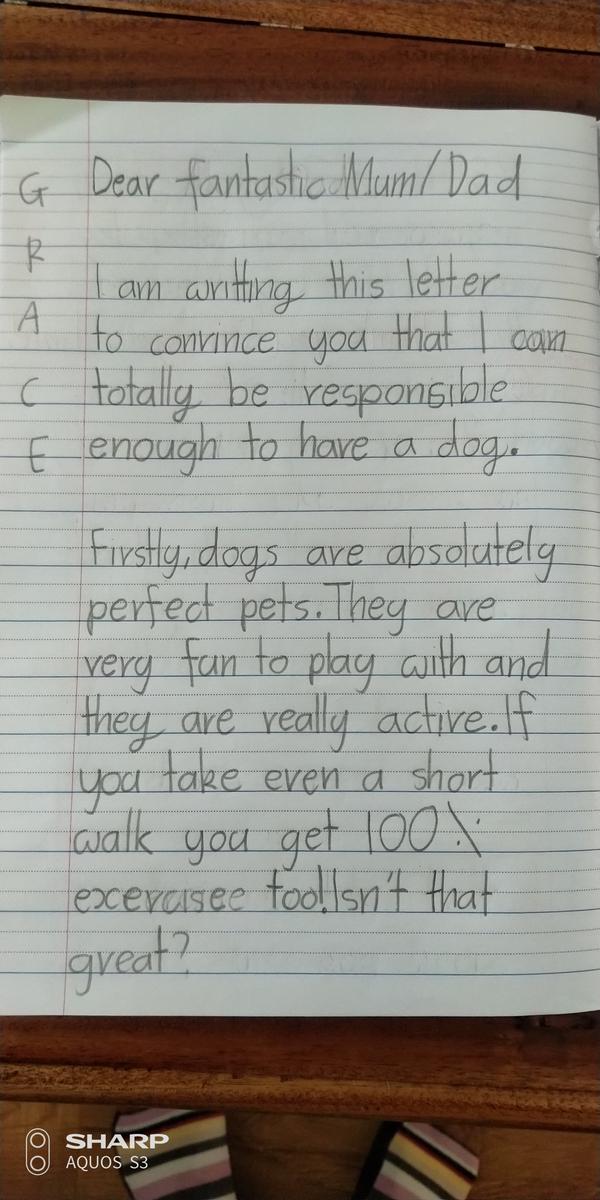 G Dear fantastic Mum/Dad
R
I am writting this letter
A to convince you that I can
C totally be responsible
E enough to have a dog.
Firstly, dogs are absolutely
perfect pets. They are
very fun to play with and
they are really active. If
you take even a short
walk you get 100%
excercisee too! Isn't that
great?
SHARP
AQUOS S3